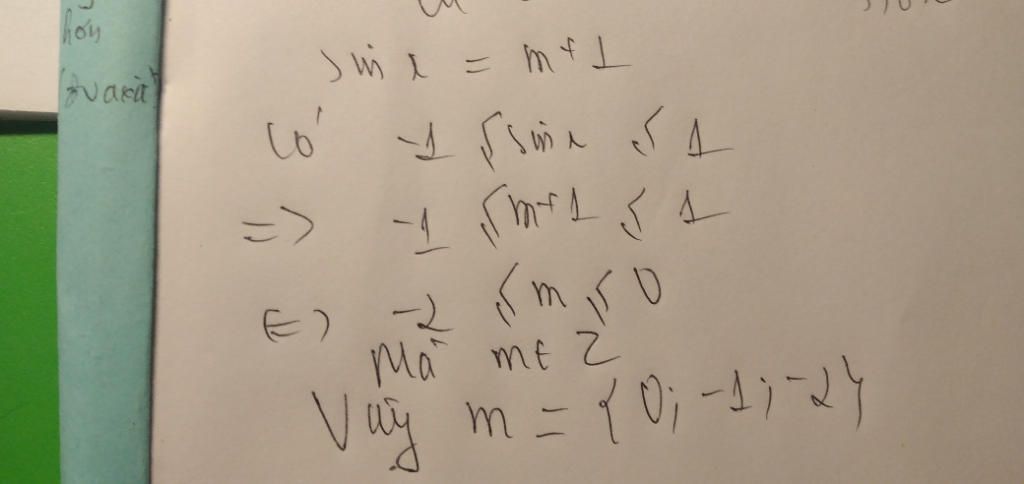 hơn
sin x = m+1
Có -1 ≤ sin x ≤ 1
=> -1 ≤ m+1 ≤ 1
<=> -2 ≤ m ≤ 0
Mà m ∈ Z
Vậy m = {0; -1; -2}